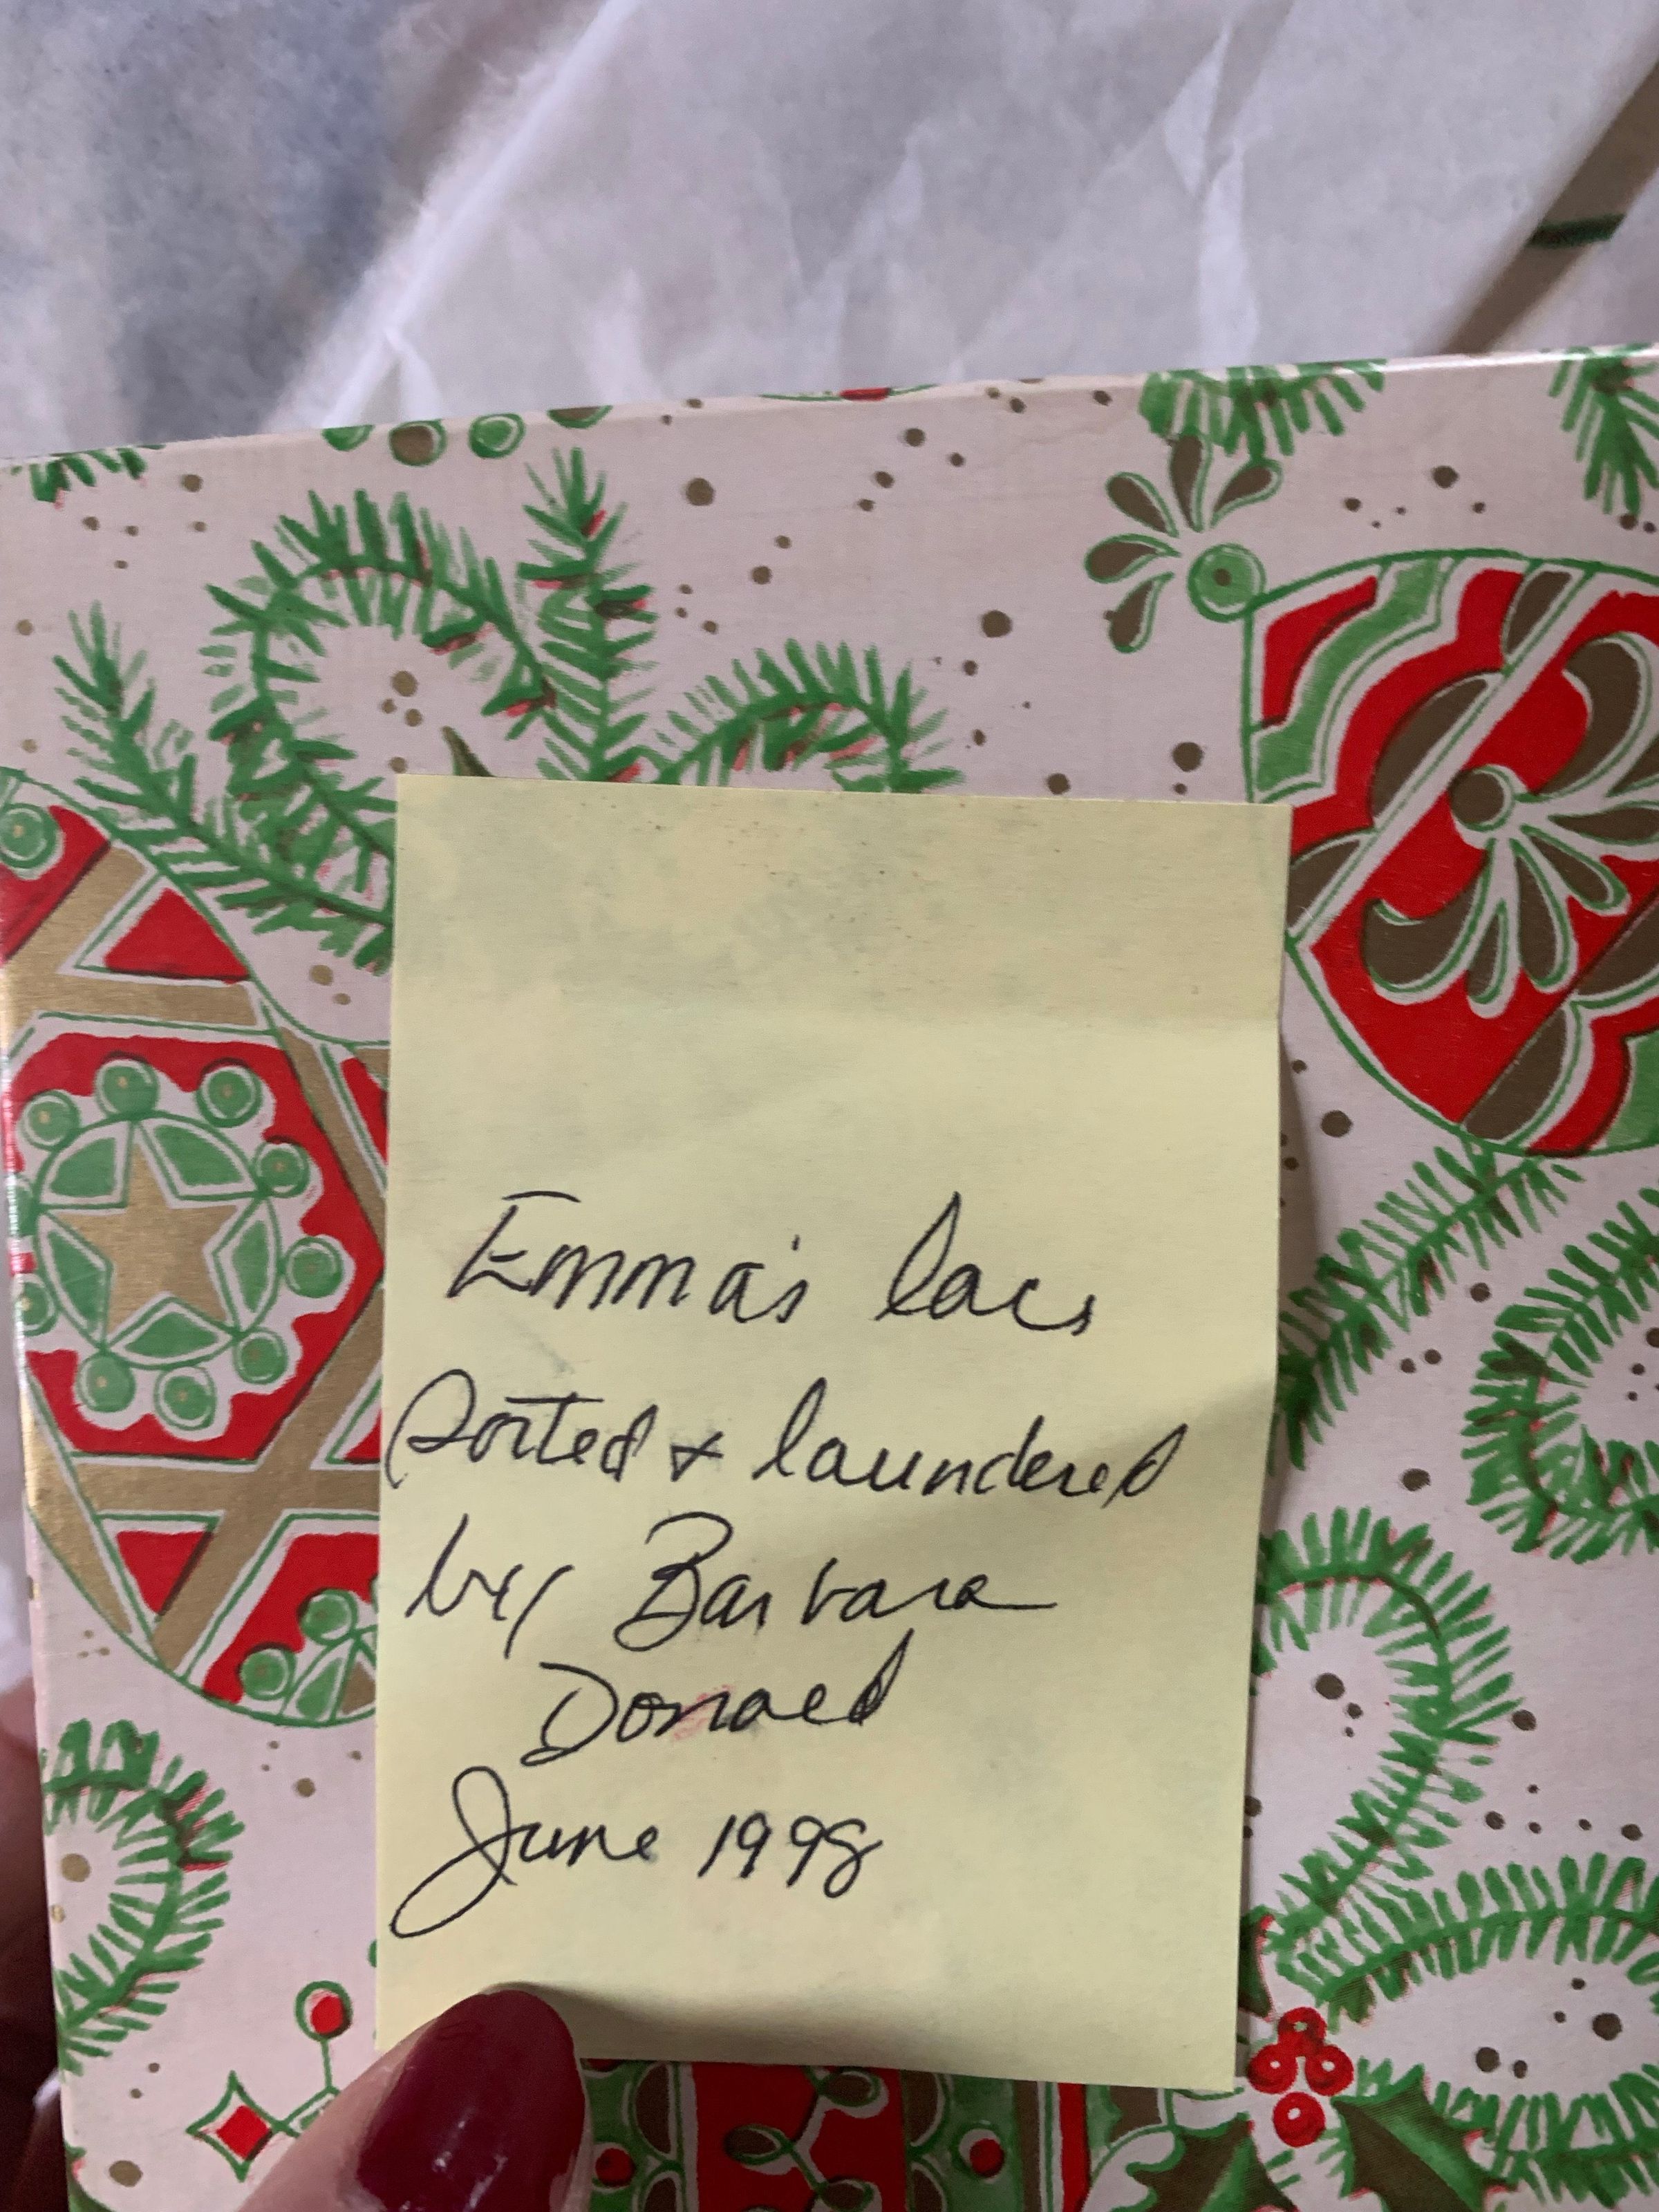 Emma's lace
sorted + laundered
by Barbara
Donald
June 1998